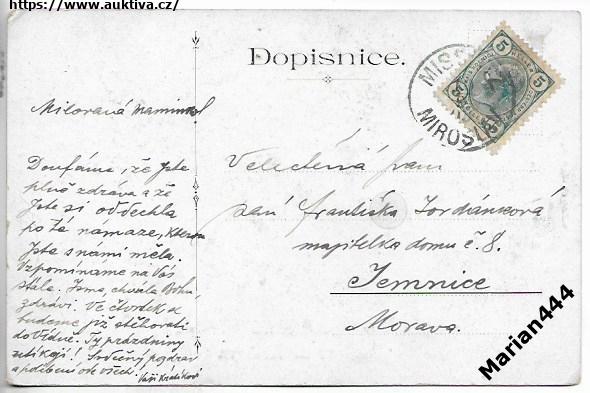 https://www.auktiva.cz/
Dopisnice.
MISS
MIROSL
5 5
5 5
Milovaná maminko!
Doufáme, že jste
plně zdráva a že
jste si oddechla
po té námaze, kterou
jste s námi měla.
Vzpomínáme na Vás
stále. Jsme, chvála Bohu,
zdrávi. Ve čtvrtek
budeme již stěhovati
do Vídně. Ty prázdniny
utíkají! Srdečný pozdrav
a políbení ode všech.
Vaši
Velectěná paní
paní Františka Jordánková
majitelka domu č. 8.
Jemnice
Morava.
Marian444